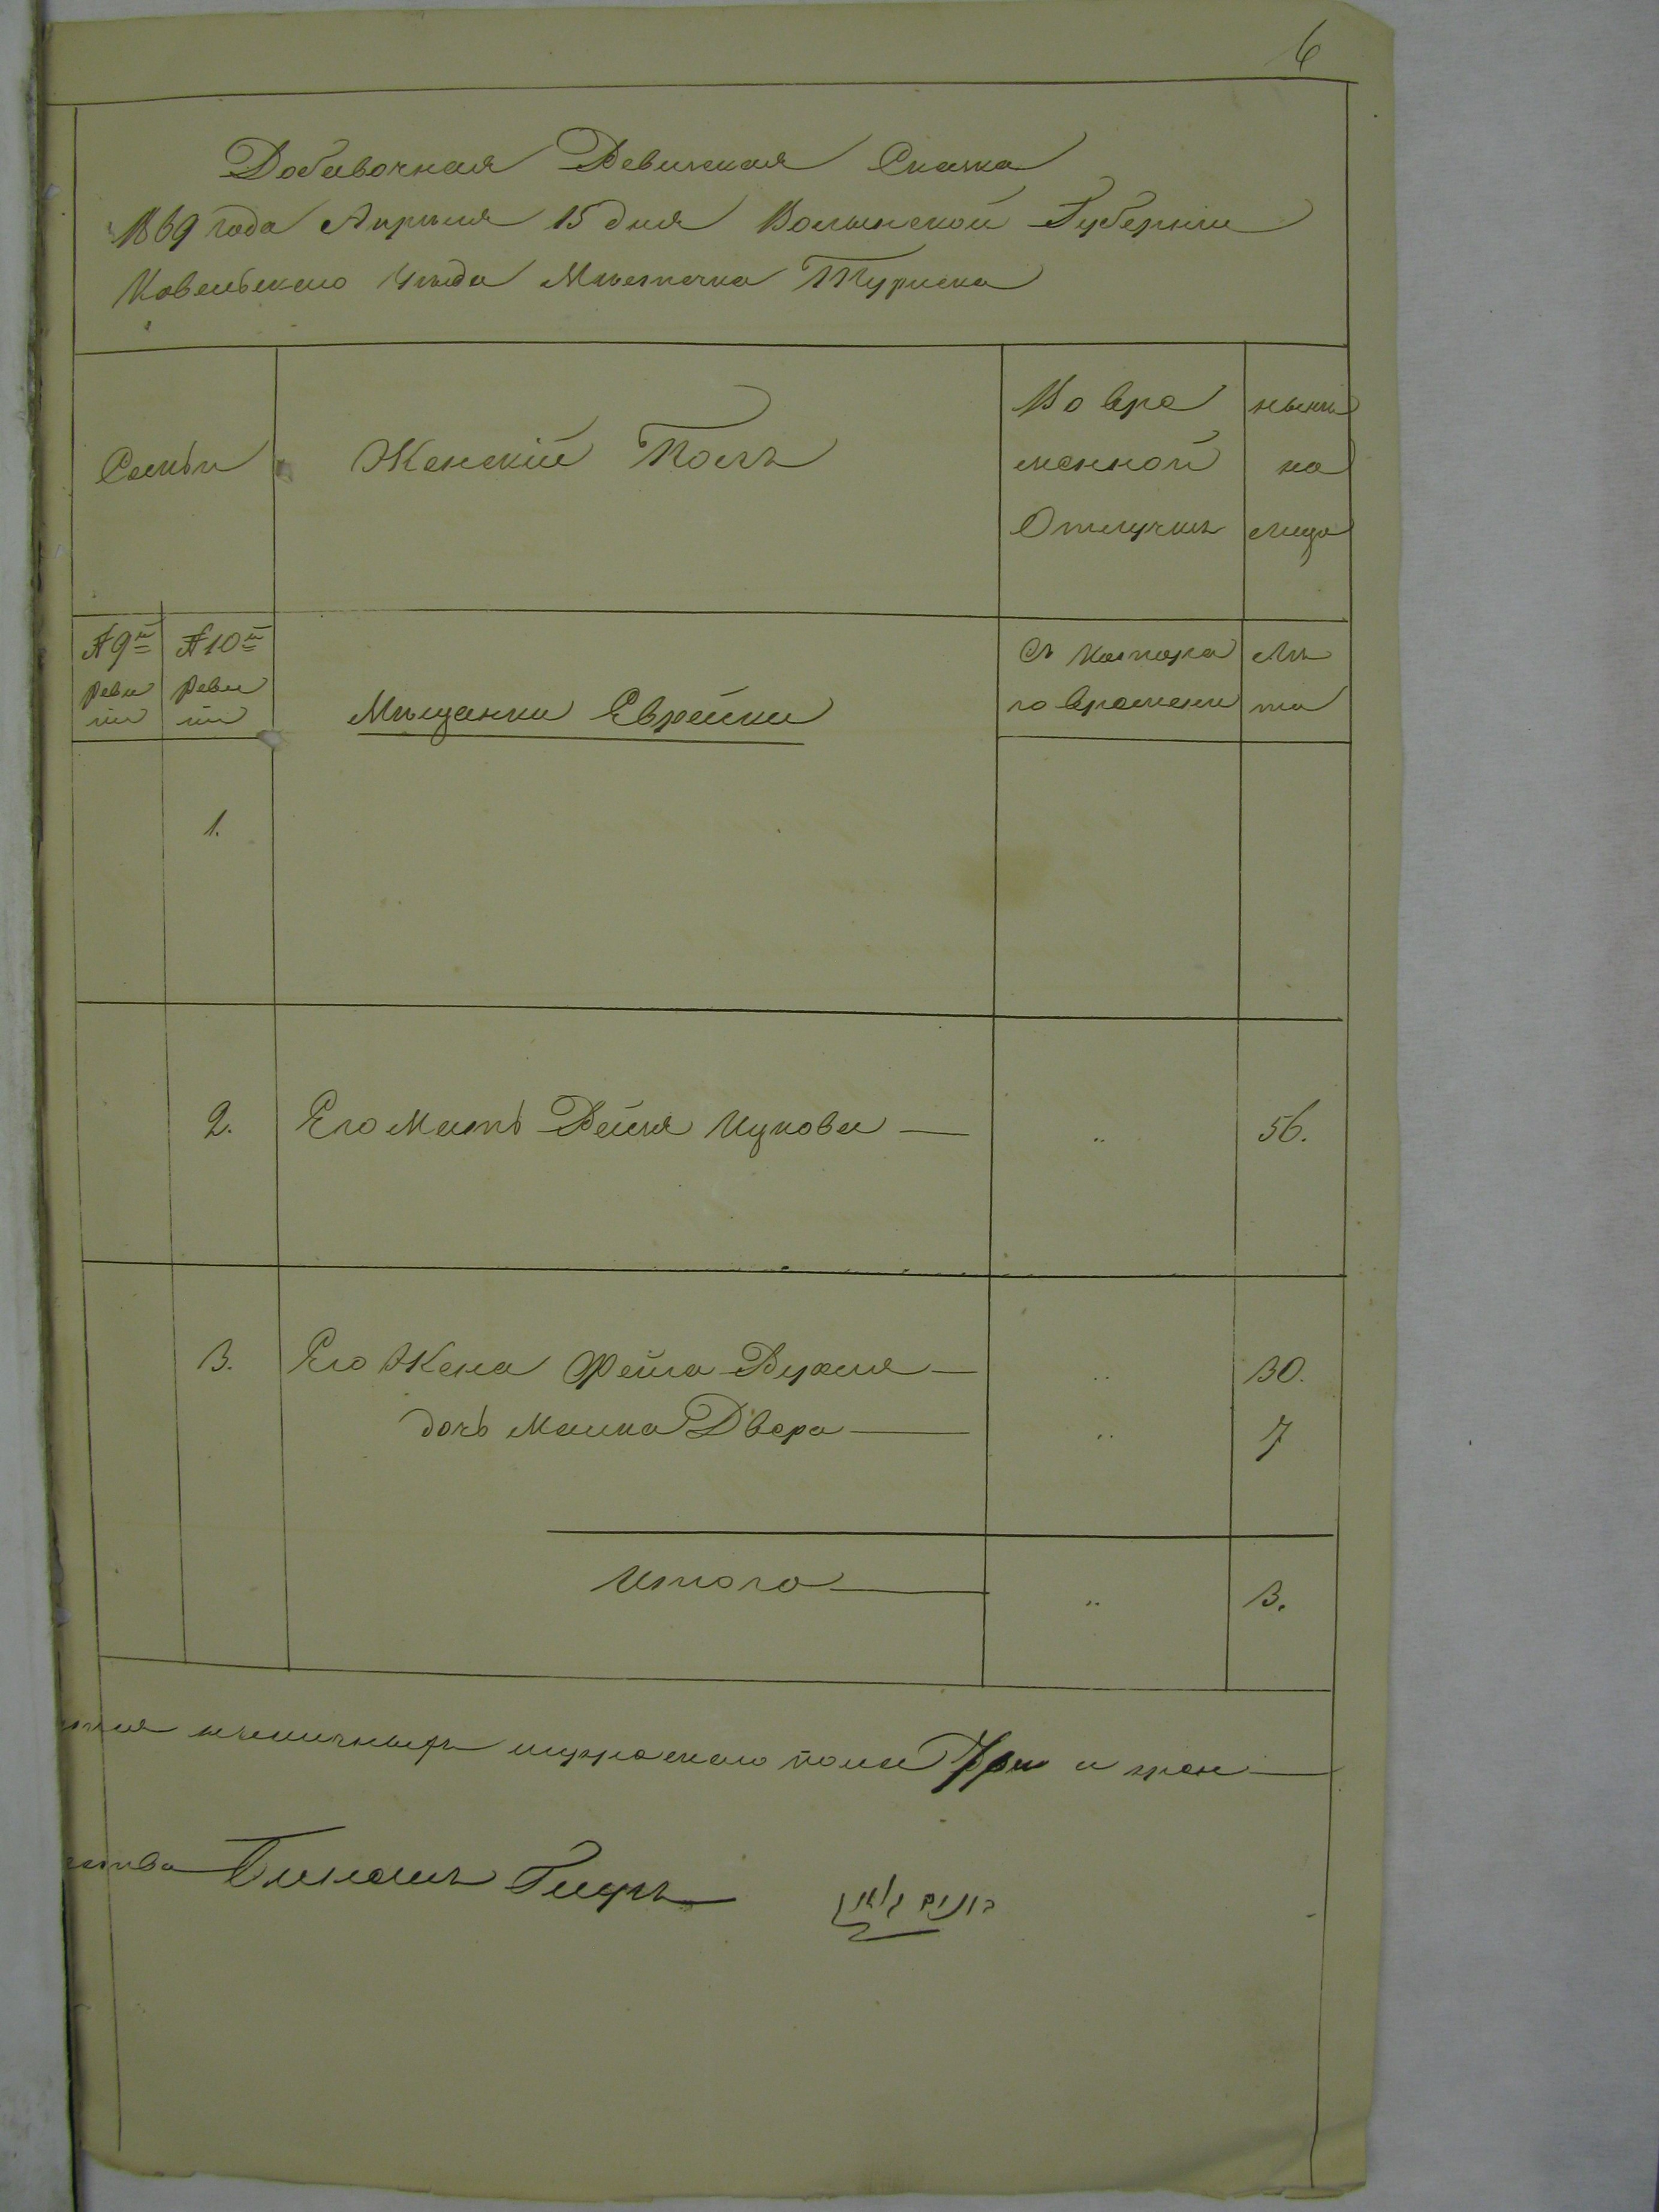 6
Добавочная Ревижская Сказка
1869 года Апрѣля 15 дня Волынской Губерніи
Ковельского Уѣзда Мѣстечка Туриска
Семьи
Женскій Полъ
Во вре
менной
Отлучкѣ
нынѣ
на
лицо
№ 9й
Реви
зіи
№ 10й
Реви
зіи
Мѣщанки Еврейки
Съ котора
го времени
Лѣ
та
1.
2. Его Мать Рейзя Ицкова — „ 56.
3. Его Жена Фейга Рухля — „ 30.
дочь Малка Двера — „ 7
Итого — „ 3.
наличныхъ мужеского пола Три и жен —